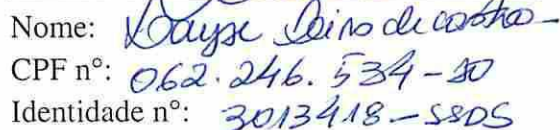 Nome: Dayse de castro
CPF nº: 062.246.534-50
Identidade nº: 3013418-SSDS